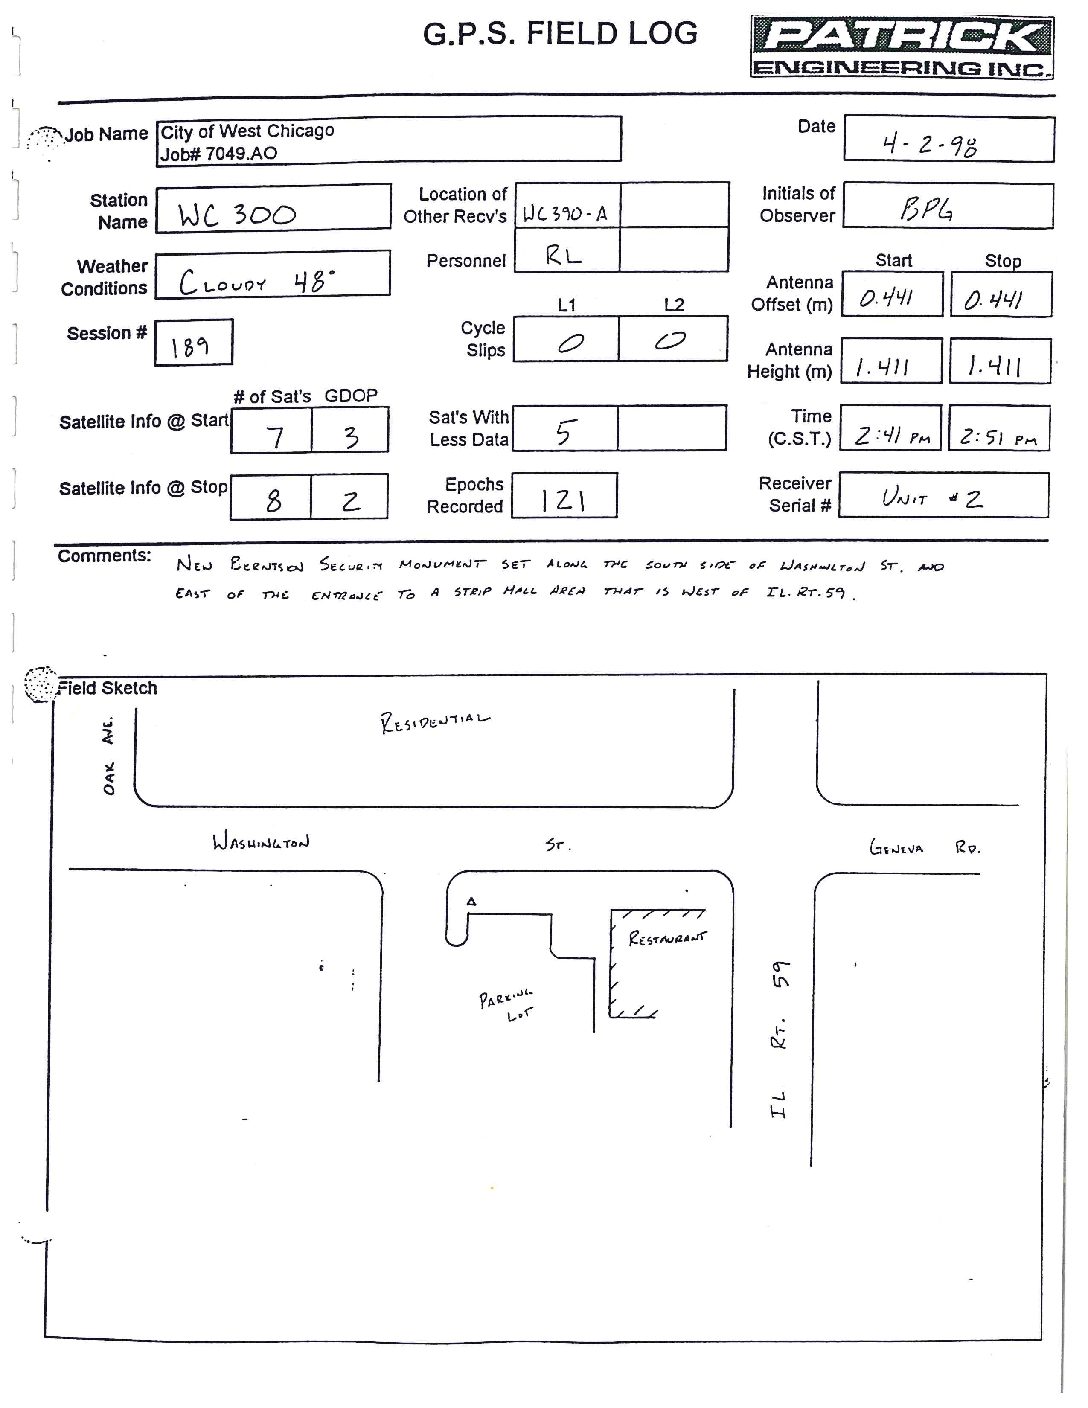 G.P.S. FIELD LOG
PATRICK
ENGINEERING INC.
Job Name City of West Chicago
Job# 7049.AO
Date 4-2-98
Station Name WC 300
Location of Other Recv's WC390-A
Initials of Observer BPG
Weather Conditions CLOUDY 48°
Personnel RL
Start Stop
Antenna Offset (m) 0.441 0.441
Session # 189
L1 L2
Cycle Slips 0 0
Antenna Height (m) 1.411 1.411
# of Sat's GDOP
Satellite Info @ Start 7 3
Sat's With Less Data 5
Time (C.S.T.) 2:41 PM 2:51 PM
Satellite Info @ Stop 8 2
Epochs Recorded 121
Receiver Serial # UNIT #2
Comments: NEW BERNTSEN SECURITY MONUMENT SET ALONG THE SOUTH SIDE OF WASHINGTON ST. AND
EAST OF THE ENTRANCE TO A STRIP MALL AREA THAT IS WEST OF IL. RT. 59.
Field Sketch
OAK AVE.
RESIDENTIAL
WASHINGTON ST.
GENEVA RD.
RESTAURANT
PARKING
LOT
IL RT. 59